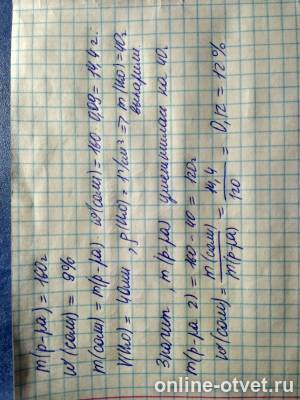 m(р-ра) = 160г
w(соли) = 9%
m(соли) = m(р-ра) · w(соли) = 160 · 0,09 = 14,4 г.
V(H₂O) = 40мл, ρ(H₂O) = 1г/см³ => m(H₂O) = 40г
выпарили
Значит, m(р-ра) уменьшилась на 40г.
m(р-ра 2) = 160 - 40 = 120г
w(соли) = m(соли) / m(р-ра) = 14,4 / 120 = 0,12 = 12%
online-otvet.ru